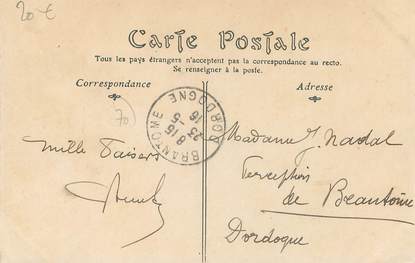 20 €
Carte Postale
Tous les pays étrangers n'acceptent pas la correspondance au recto.
Se renseigner à la poste.
Correspondance
Adresse
70
BRANTOME
DORDOGNE
8 15
23 - 5
16
Mille Baisers
Madame J. Nadal
Perception
de Brantôme
Dordogne